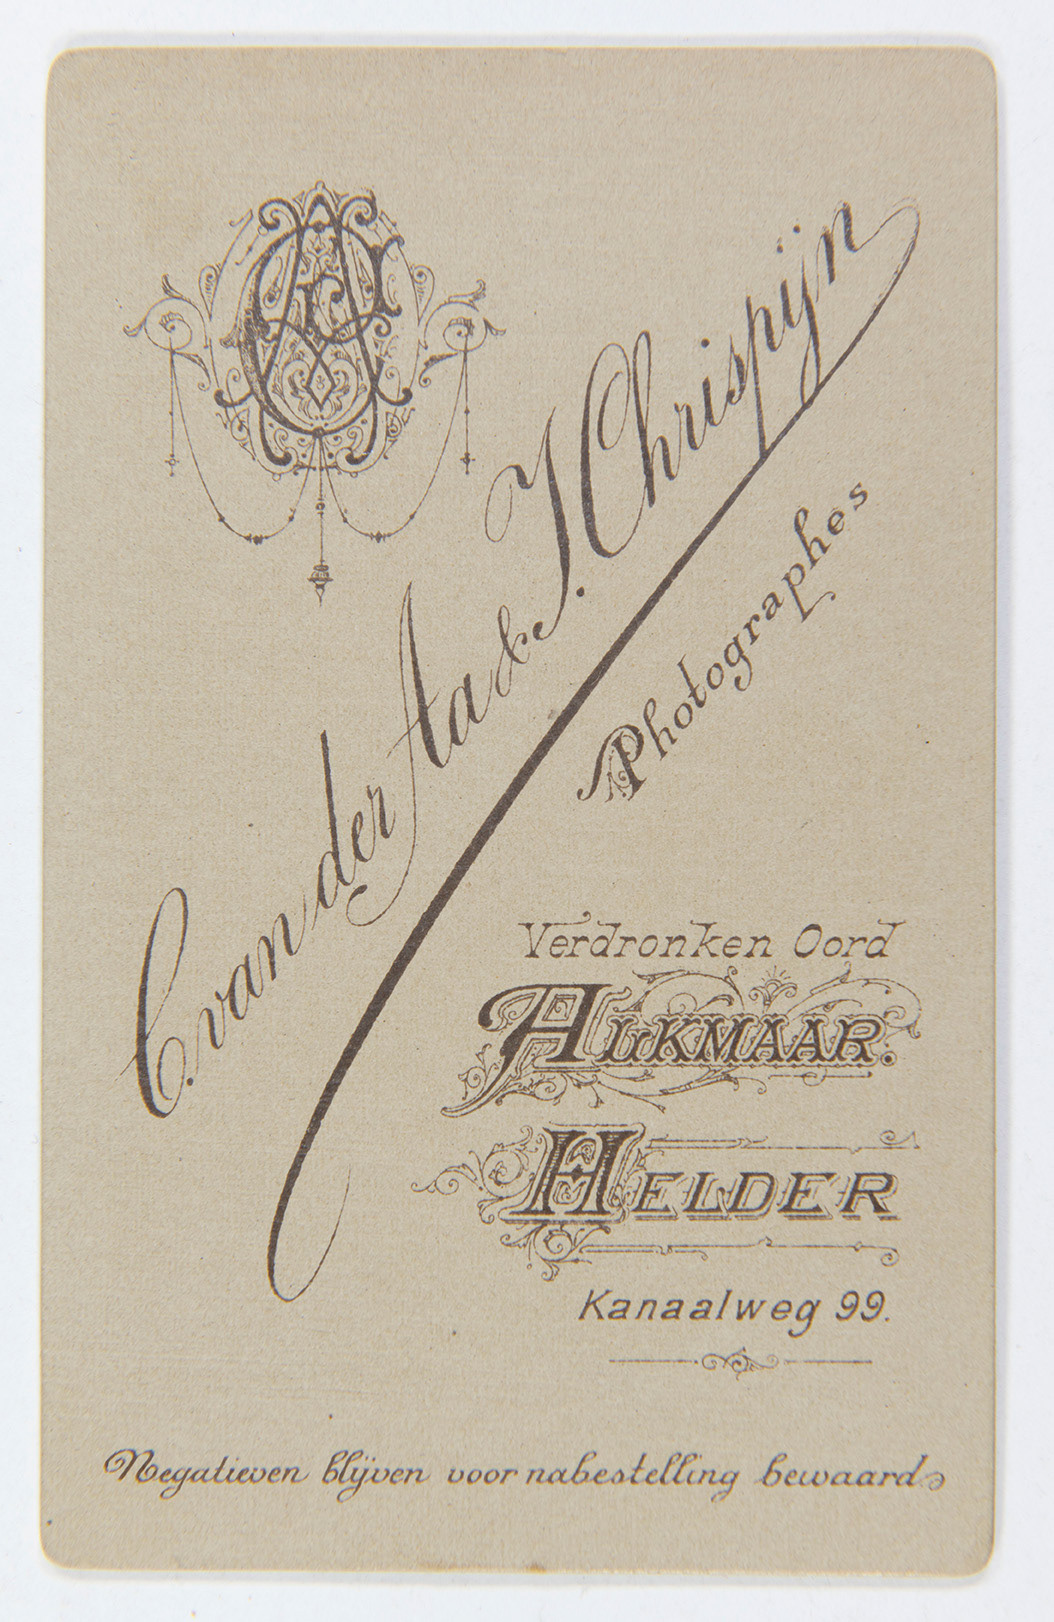 C. van der Aa & J. Chrispijn
Photographes
Verdronken Oord
ALKMAAR.
HELDER
Kanaalweg 99.
Negatieven blijven voor nabestelling bewaard